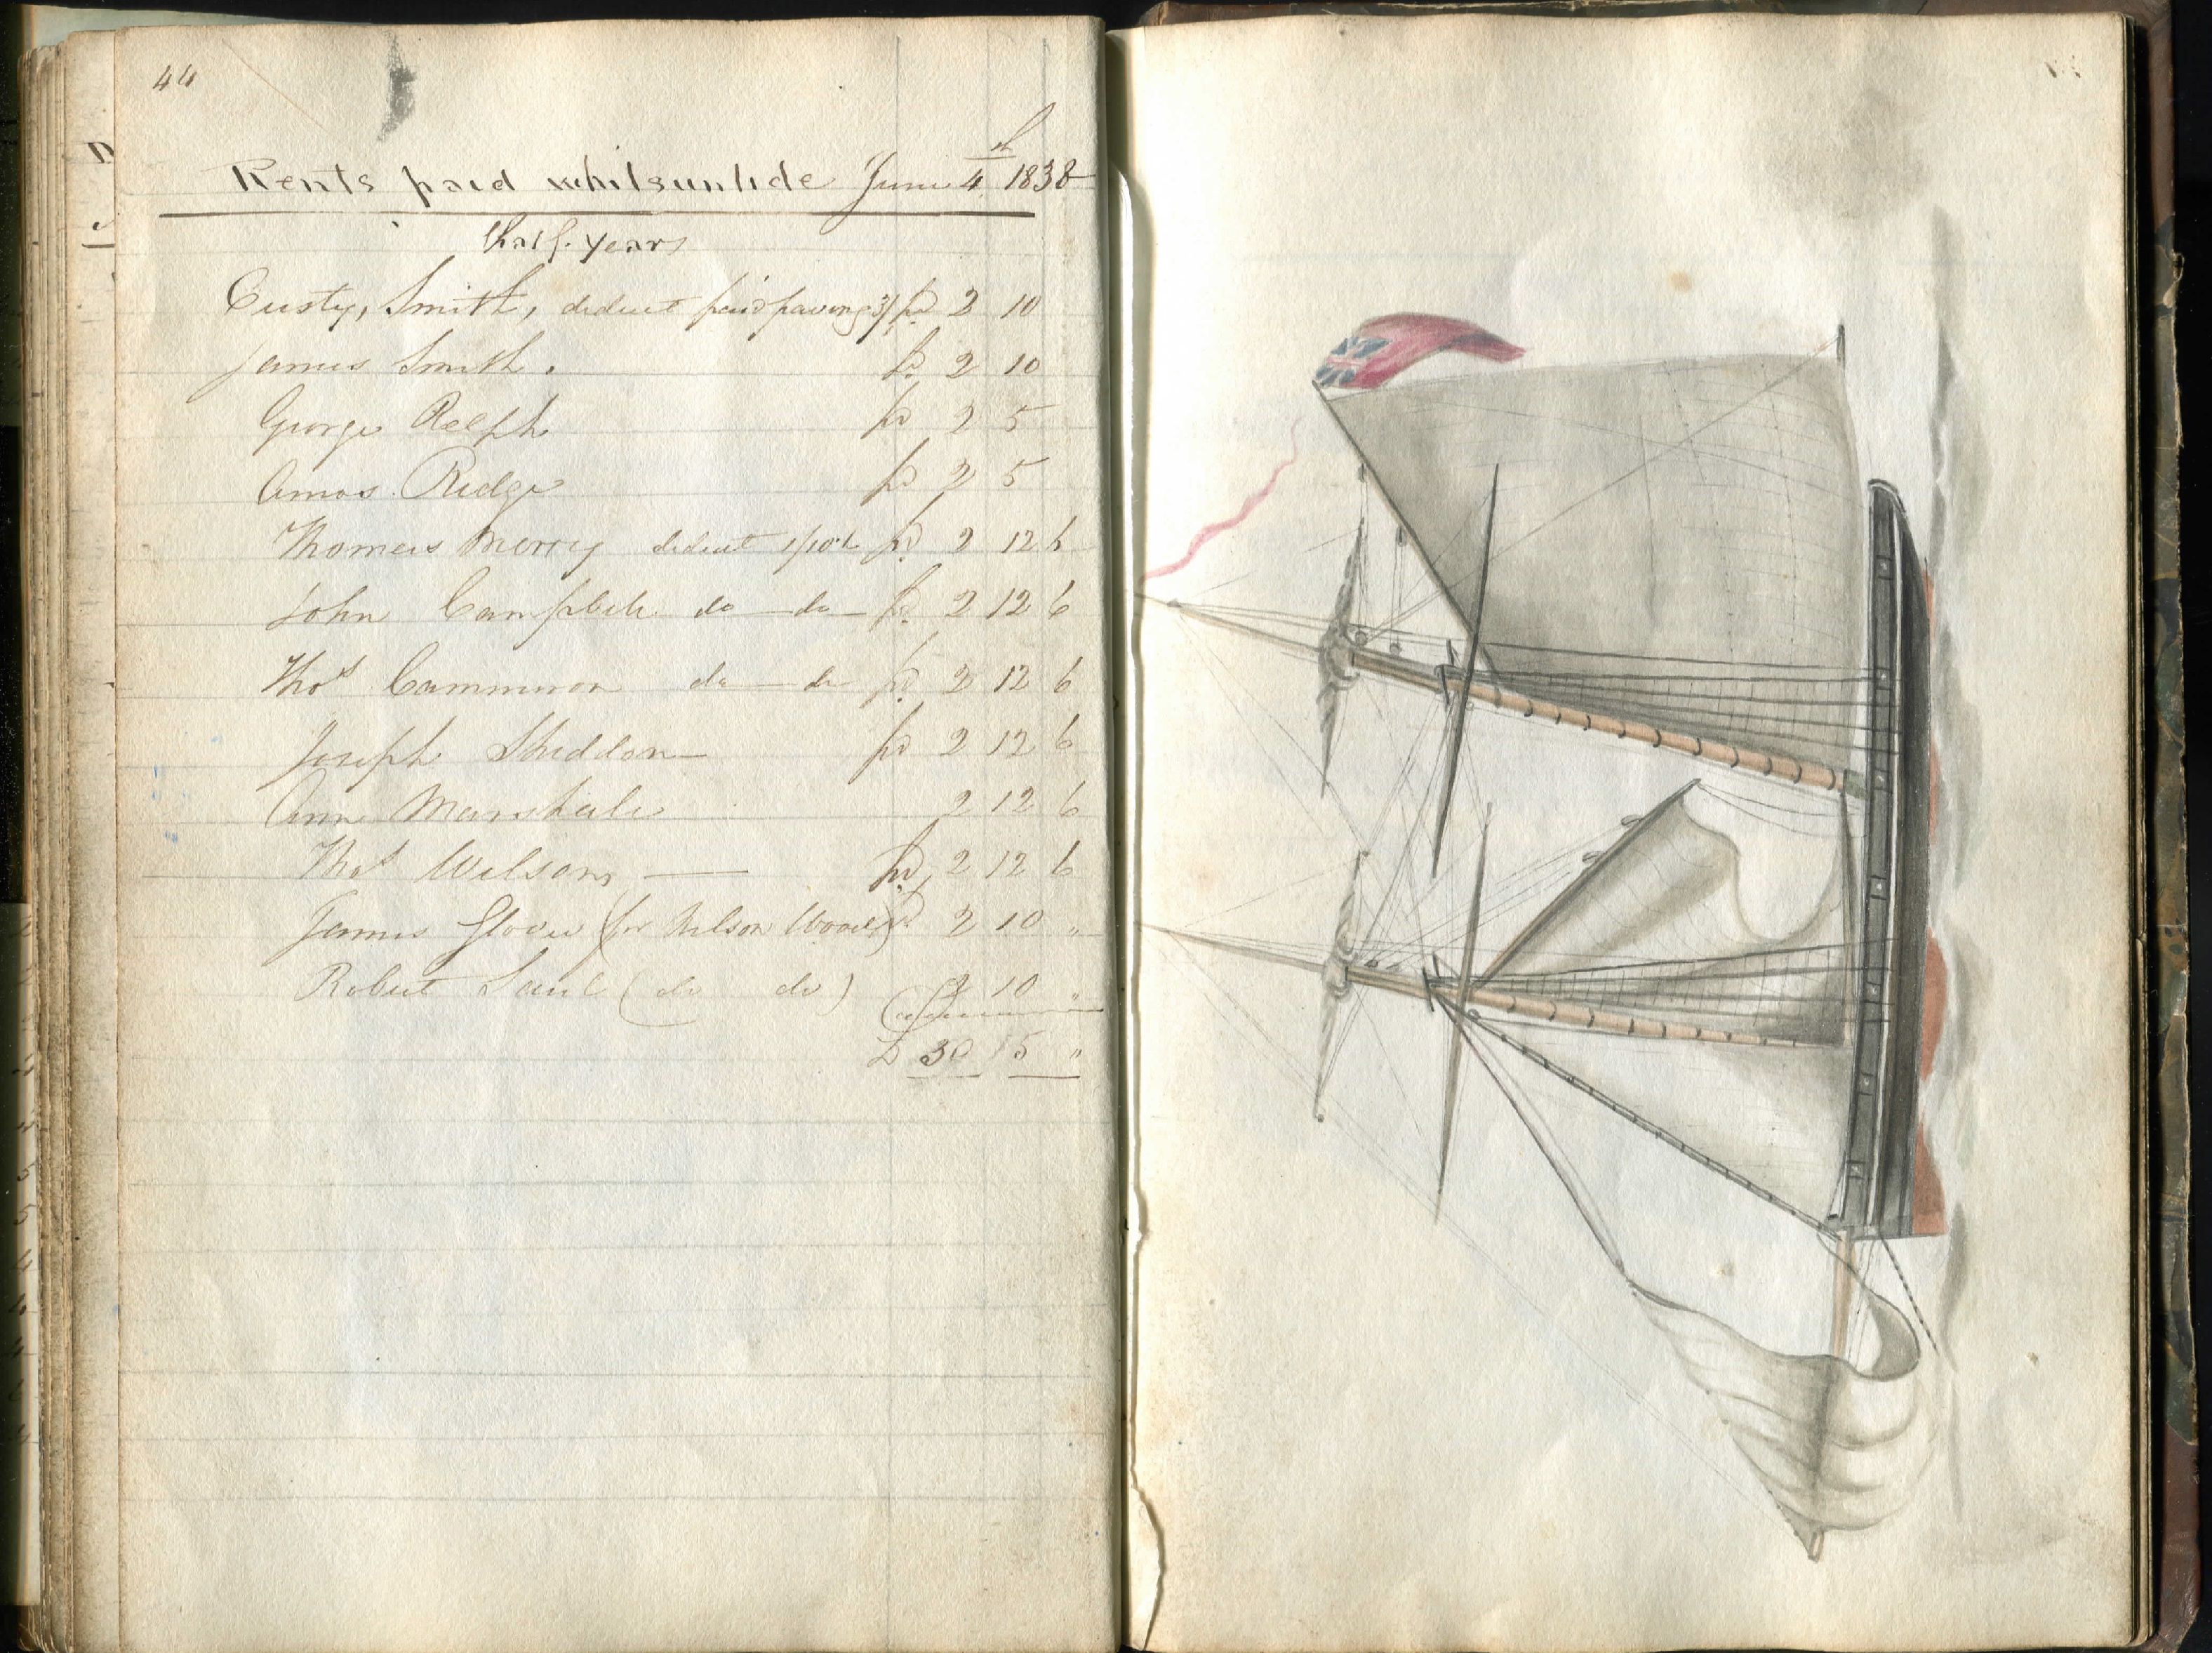 44
Rents paid whitsuntide June 4th 1838
half years
Custy, Smith, deduct paid paving 3/ pd 2 10
James Smith. pd 2 10
George Ralph pd 2 5
Amos Ridge pd 2 5
Thomas Merry deduct 1/10½ pd 2 12 6
John Campbele do — do — pd 2 12 6
Thos Cammeron do — do pd 2 12 6
Joseph Sheddon — pd 2 12 6
Ann Marshale 2 12 6
Thos Wilson, — pd 2 12 6
James Glover (for Nelson Wood) pd 2 10 "
Robert (do do) 2 10 "
£ 30 15 "